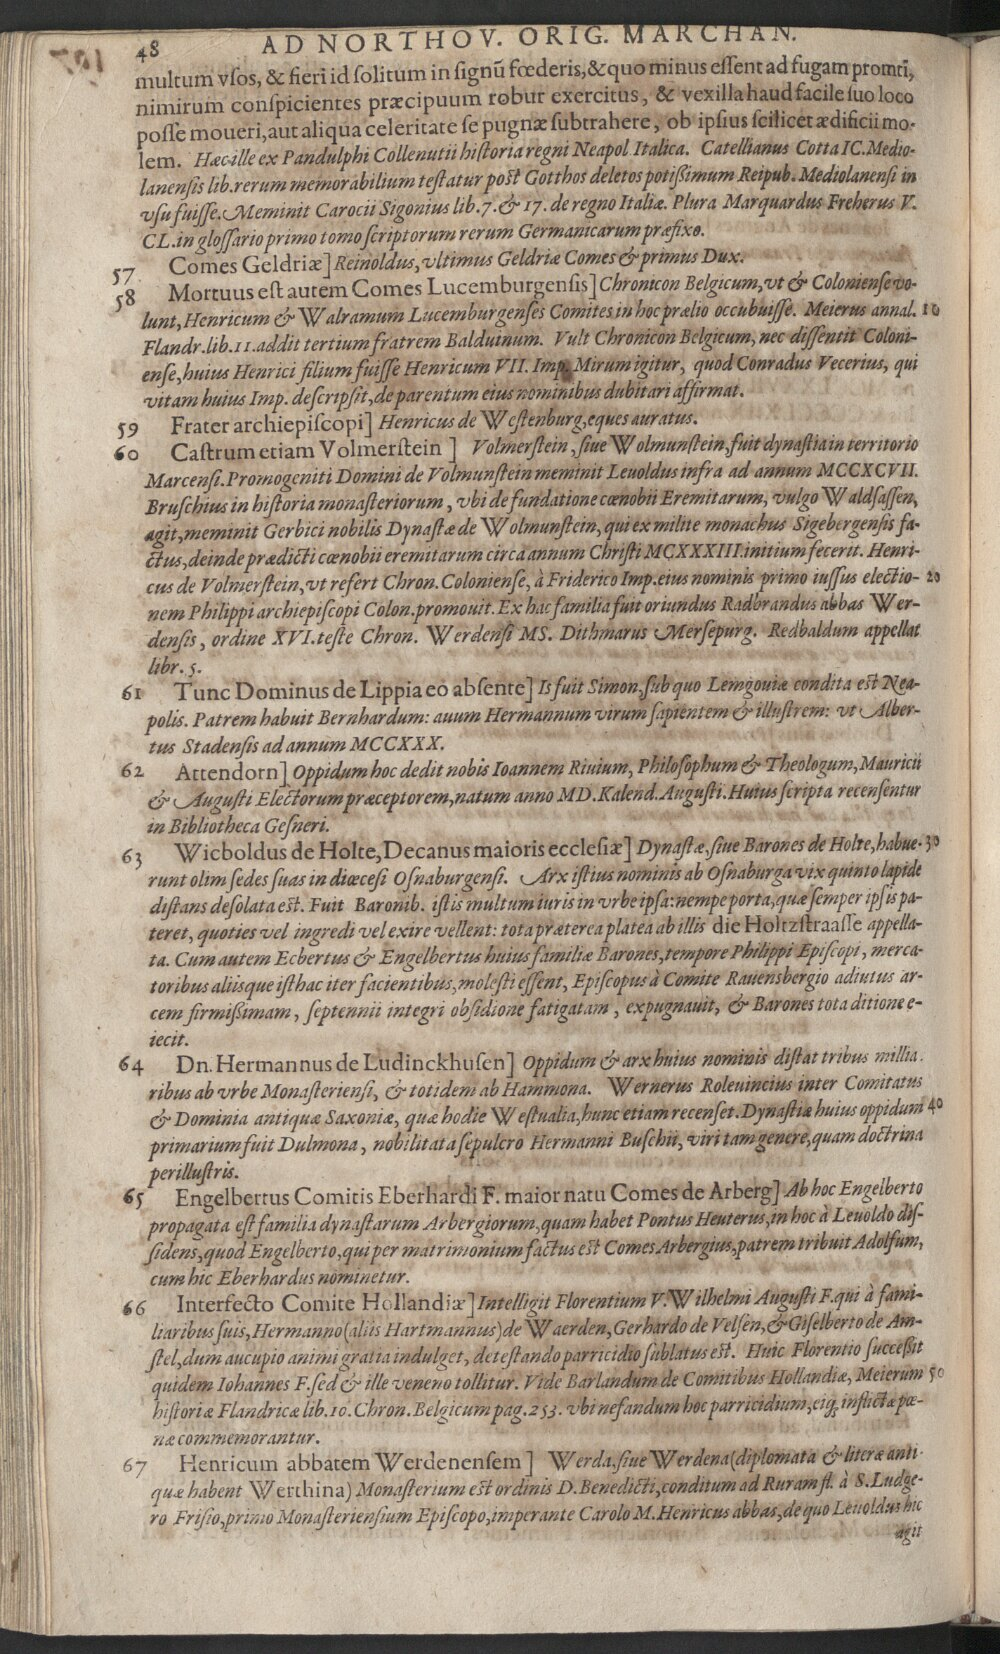 48 AD NORTHOV. ORIG. MARCHAN.
multum vsos, & fieri id solitum in signũ fœderis, & quo minus essent ad fugam promti,
nimirum conspicientes præcipuum robur exercitus, & vexilla haud facile suo loco
posse moueri, aut aliqua celeritate se pugnæ subtrahere, ob ipsius scilicet ædificii mo-
lem. Hæc ille ex Pandulphi Collenutii historia regni Neapol Italica. Catellianus Cotta IC. Medio-
lanensis lib. rerum memorabilium testatur post Gotthos deletos potißimum Reipub. Mediolanensi in
vsu fuisse. Meminit Carocii Sigonius lib. 7. & 17. de regno Italiæ. Plura Marquardus Freherus V.
CL. in glossario primo tomo scriptorum rerum Germanicarum præfixo.
57 Comes Geldriæ] Reinoldus, vltimus Geldriæ Comes & primus Dux.
58 Mortuus est autem Comes Lucemburgensis] Chronicon Belgicum, vt & Coloniense vo-
lunt, Henricum & Walramum Lucemburgenses Comites in hoc prælio occubuisse. Meierus annal. 10
Flandr. lib. 11. addit tertium fratrem Balduinum. Vult Chronicon Belgicum, nec dissentit Coloni-
ense, huius Henrici filium fuisse Henricum VII. Imp. Mirum igitur, quod Conradus Vecerius, qui
vitam huius Imp. descripsit, de parentum eius nominibus dubitari affirmat.
59 Frater archiepiscopi] Henricus de Westenburg, eques auratus.
60 Castrum etiam Volmerstein] Volmerstein, siue Wolmunstein, fuit dynastia in territorio
Marcensi. Promogeniti Domini de Volmunstein meminit Leuoldus infra ad annum MCCXCVII.
Bruschius in historia monasteriorum, vbi de fundatione cœnobii Eremitarum, vulgo Waldsassen,
agit, meminit Gerbici nobilis Dynastæ de Wolmunstein, qui ex milite monachus Sigebergensis fa-
ctus, deinde prædicti cœnobii eremitarum circa annum Christi MCXXXIII. initium fecerit. Henri-
cus de Volmerstein, vt refert Chron. Coloniense, à Friderico Imp. eius nominis primo iussus electio- 20
nem Philippi archiepiscopi Colon. promouit. Ex hac familia fuit oriundus Radbrandus abbas Wer-
densis, ordine XVI. teste Chron. Werdensi MS. Dithmarus Mersepurg. Redbaldum appellat
libr. 5.
61 Tunc Dominus de Lippia eo absente] Is fuit Simon, sub quo Lemgouiæ condita est Nea-
polis. Patrem habuit Bernhardum: auum Hermannum virum sapientem & illustrem: vt Alber-
tus Stadensis ad annum MCCXXX.
62 Attendorn] Oppidum hoc dedit nobis Ioannem Riuium, Philosophum & Theologum, Mauricii
& Augusti Electorum præceptorem, natum anno MD. Kalend. Augusti. Huius scripta recensentur
in Bibliotheca Gesneri.
63 Wicboldus de Holte, Decanus maioris ecclesiæ] Dynastæ, siue Barones de Holte, habue- 30
runt olim sedes suas in diœcesi Osnaburgensi. Arx istius nominis ab Osnaburga vix quinto lapide
distans desolata est. Fuit Baronib. istis multum iuris in vrbe ipsa: nempe porta, quæ semper ipsis pa-
teret, quoties vel ingredi vel exire vellent: tota præterea platea ab illis die Holtzstraasse appella-
ta. Cum autem Ecbertus & Engelbertus huius familiæ Barones, tempore Philippi Episcopi, merca-
toribus aliisque isthac iter facientibus, molesti essent, Episcopus à Comite Rauensbergio adiutus ar-
cem firmißimam, septennii integri obsidione fatigatam, expugnauit, & Barones tota ditione e-
iecit.
64 Dn. Hermannus de Ludinckhusen] Oppidum & arx huius nominis distat tribus millia-
ribus ab vrbe Monasteriensi, & totidem ab Hammona. Wernerus Roleuincius inter Comitatus
& Dominia antiquæ Saxoniæ, quæ hodie Westualia, hunc etiam recenset. Dynastiæ huius oppidum 40
primarium fuit Dulmona, nobilitata sepulcro Hermanni Buschii, viri tam genere, quam doctrina
perillustris.
65 Engelbertus Comitis Eberhardi F. maior natu Comes de Arberg] Ab hoc Engelberto
propagata est familia dynastarum Arbergiorum, quam habet Pontus Heuterus, in hoc à Leuoldo dis-
sidens, quod Engelberto, qui per matrimonium factus est Comes Arbergius, patrem tribuit Adolfum,
cum hic Eberhardus nominetur.
66 Interfecto Comite Hollandiæ] Intelligit Florentium V. Wilhelmi Augusti F. qui à fami-
liaribus suis, Hermanno (aliis Hartmannus) de Waerden, Gerhardo de Velsen, & Giselberto de Am-
stel, dum aucupio animi gratia indulget, detestando parricidio sublatus est. Huic Florentio successit
quidem Iohannes F. sed & ille veneno tollitur. Vide Barlandum de Comitibus Hollandiæ, Meierum 50
historiæ Flandricæ lib. 10. Chron. Belgicum pag. 253. vbi nefandum hoc parricidium, eiq; inflictæ pœ-
næ commemorantur.
67 Henricum abbatem Werdenensem] Werda, siue Werdena (diplomata & literæ anti-
quæ habent Werthina) Monasterium est ordinis D. Benedicti, conditum ad Ruram fl. à S. Ludge-
ro Frisio, primo Monasteriensium Episcopo, imperante Carolo M. Henricus abbas, de quo Leuoldus hic
agit